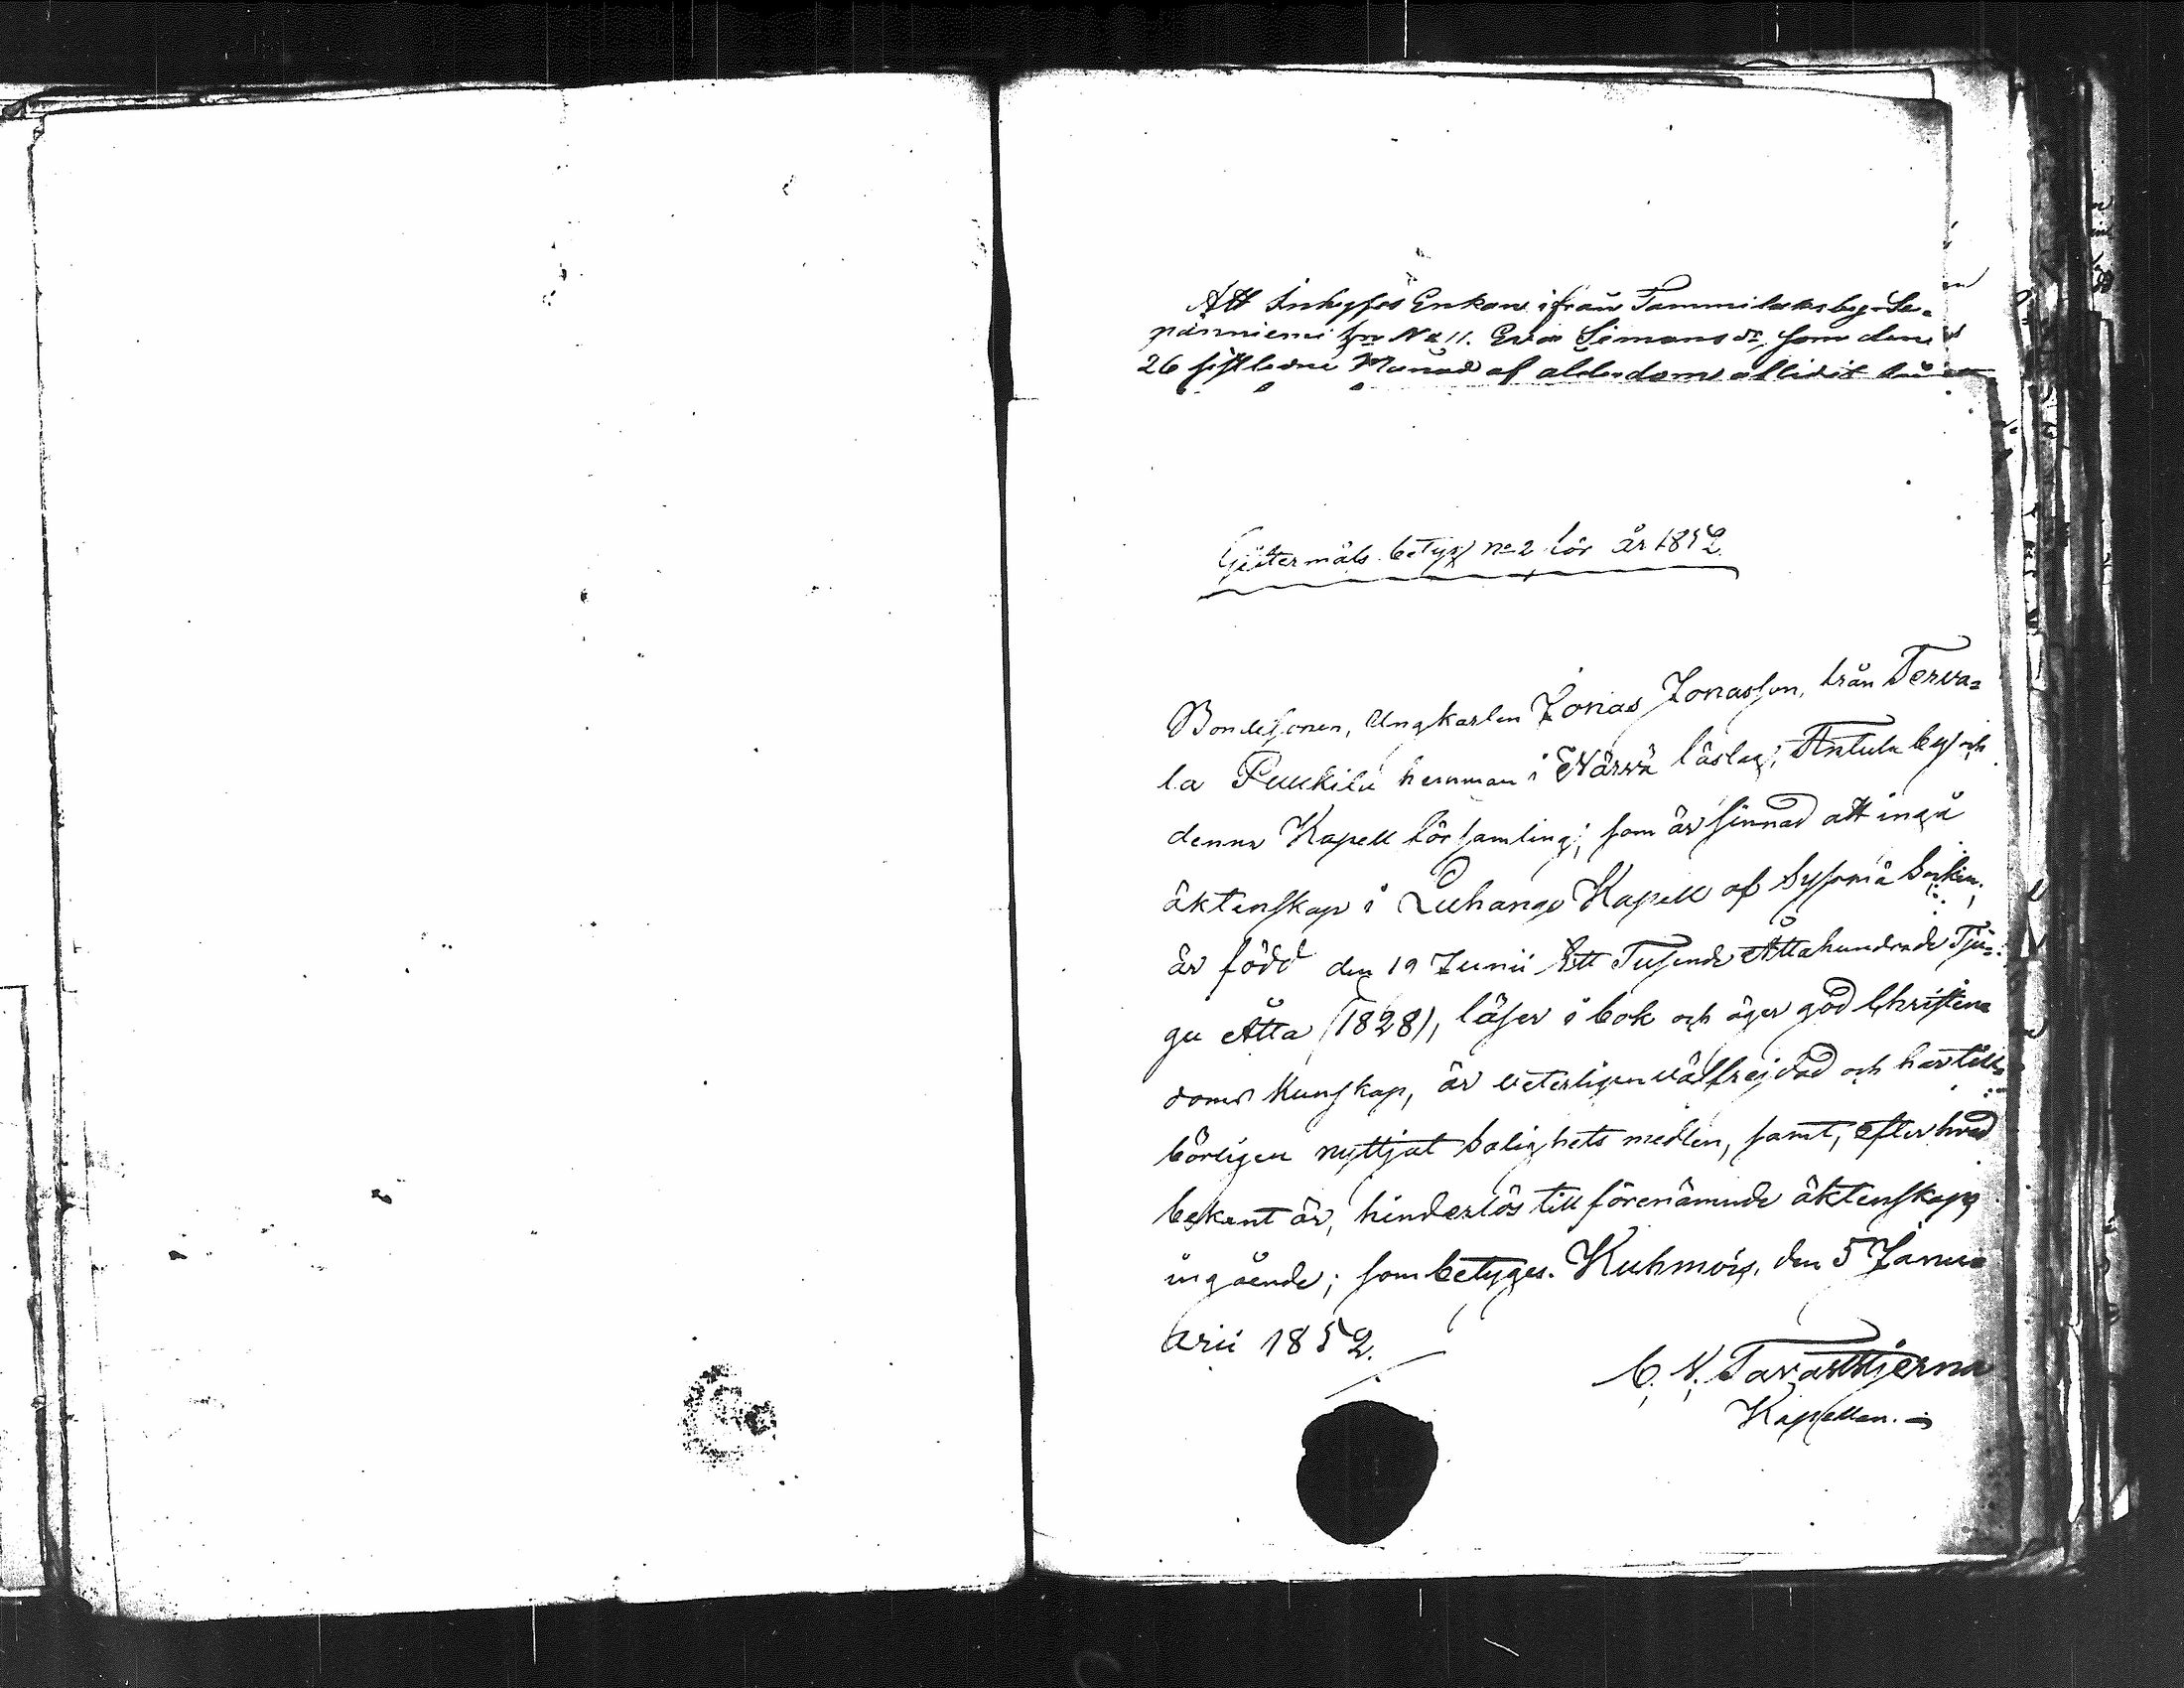 Att Inhyses Enkan ifrån Tammilaksby Le-
pänniemi hn No 11. Eva Simons dr, som den
26 sistledne Månad af ålderdom aflidit
Giftermåls betyg No 2 för år 1852.
Bondesonen, Ungkarlen Jonas Jonasson, från Terva=
la Puukila hemman i Wärvä läslag, Antula by och
denna Kapell församling; som är sinnad att ingå
äktenskap i Luhango Kapell af Sysmä Socken,
är född den 19 Junii Ett Tusende Åttahundrade Tju=
gu Åtta (1828), läser i bok och äger god Christen=
doms Kunskap, är veterligen välfrejdad och har till=
börligen nyttjat Salighets medlen, samt, efter hvad
bekant är, hinderlös till förenämnde äktenskaps
ingående; som betyges. Kuhmois, den 5 Janu=
arii 1852.
C. N. Tavaststjerna
Kapellan.